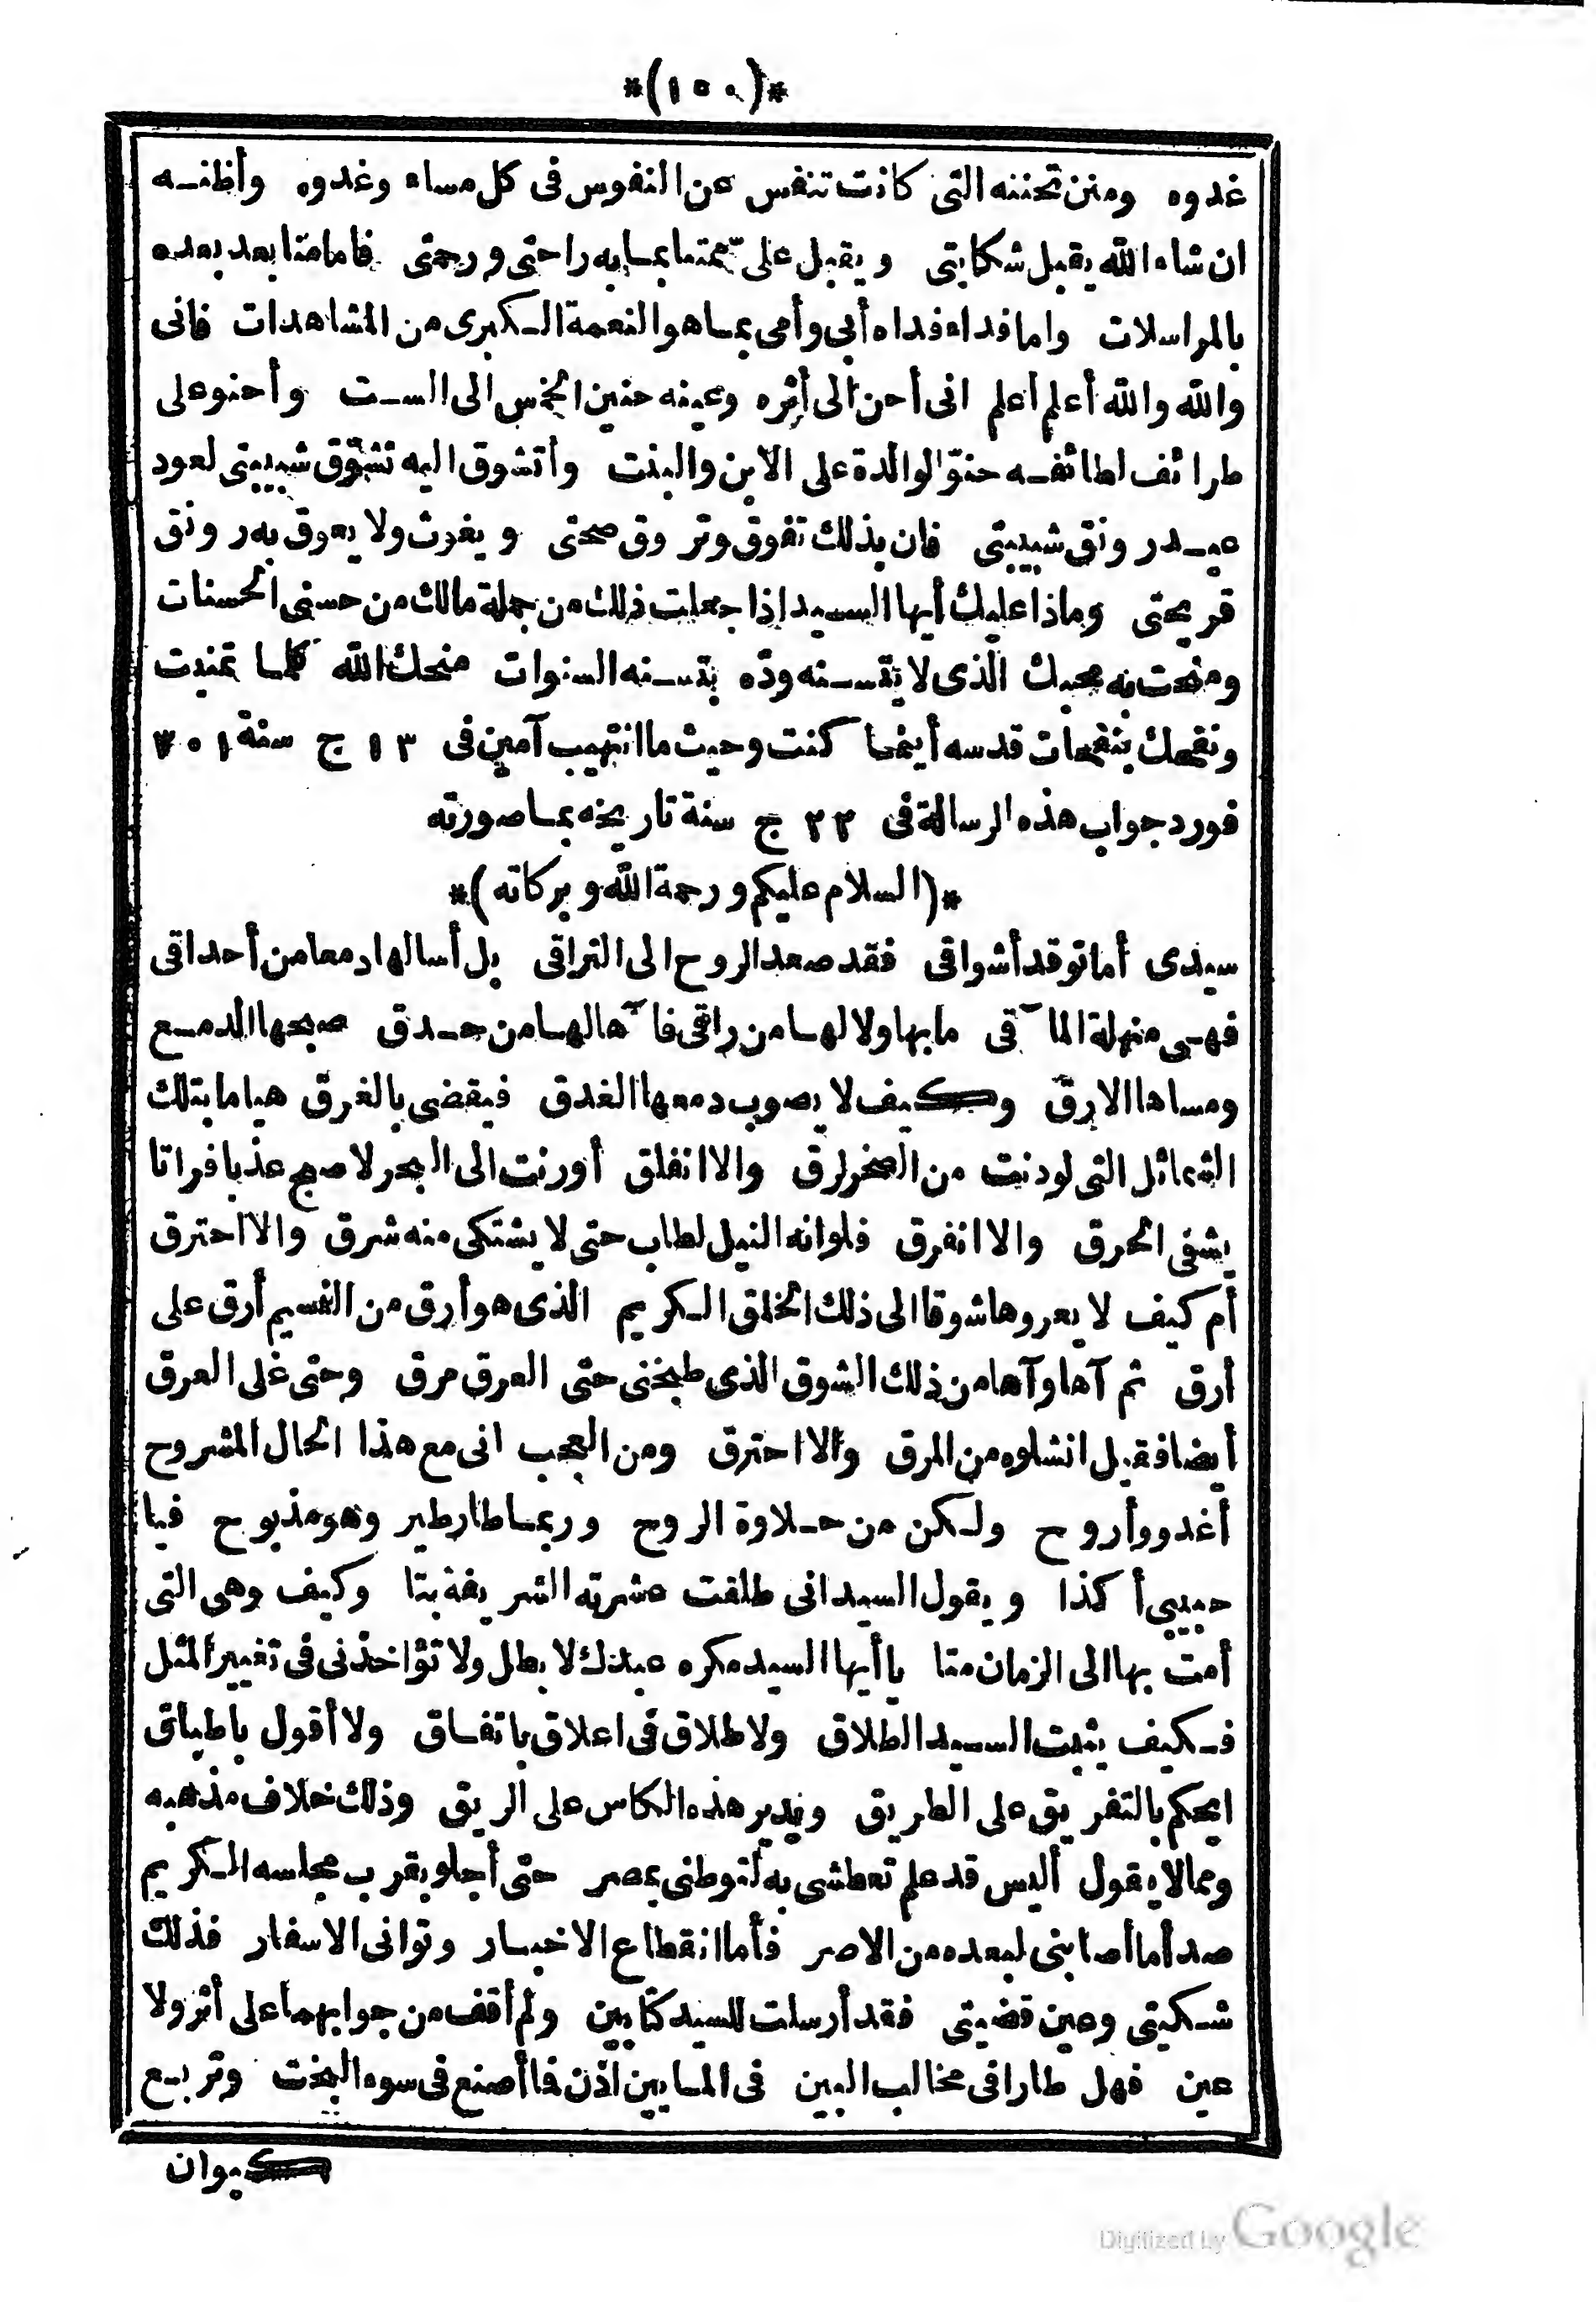 *(١٥٠)*
غدوه ومنن تحننه التى كانت تنفس عن النفوس فى كل مساء وغدوه وأظنـه
ان شاء الله يقبل شكايتى ويقبل على متحتما بما به راحتى ورحمتى فامامننا بعد بعده
بالمراسلات واما فداء فداه أبى وأمى بما هو النعمة الـكبرى من المشاهدات فانى
والله والله أعلم أعلم انى أحن الى أثره وعينه حنين الخمس الى السـت وأحنو على
طرائف لطائفـه حنو الوالدة على الابن والبنت وأتشوق اليه تشوّق شيبتى لعود
عيـد رونق شبيبتى فان بذلك تفوق وتروق صحتى ويغدق ولا يعوق به رونق
قريحتى وماذا عليك أيها السيد اذا جعلت ذلك من جملة مالك من حسنى الحسنات
ومنحت به محبك الذى لا يتسـنه ودّه بتسـنه السنوات منحك الله كلما تمنيت
ونفحك بنفحات قدسه أينما كنت وحيث ما انتهيت آمين فى ١٣ ج سنة ١٣٠١
فورد جواب هذه الرسالة فى ٢٣ ج سنة تاريخه بما صورته
*(السلام عليكم ورحمة الله وبركاته)*
سيدى أما توقد أشواقى فقد صعد الروح الى التراقى بل أسالها دمعا من أحداقى
فهـى منهلة المآقى مابها ولا لها من راقى فآها لها من حـدق صبحها الدمـع
ومساها الارق وكيف لا يصوب دمعها الغدق فيقضى بالغرق هياما بتلك
الشمائل التى لو دنت من الصخر لرق والا انفلق أو رنت الى البحر لاصبح عذبا فراتا
يشفى الحرق والا انفرق فلو انه النيل لطاب حتى لا يشتكى منه شرق والا احترق
أم كيف لا يعروها شوقا الى ذلك الخلق الـكريم الذى هو أرق من النسيم أرق على
أرق ثم آها وآها من ذلك الشوق الذى طبخنى حتى العرق مرق وحتى غلى العرق
أيضا فقيل انشلوه من المرق والا احترق ومن العجب انى مع هذا الحال المشروح
أغدو وأروح ولـكن من حـلاوة الروح وربما طار طير وهو مذبوح فيا
حبيبى أكذا ويقول السيد انى طلقت عشرته الشريفة بتا وكيف وهى التى
أمت بها الى الزمان متا يا أيها السيد مكره عبدك لا بطل ولا تؤاخذنى فى تغيير المثل
فـكيف يثبت السـيد الطلاق ولا طلاق فى اغلاق باتفاق ولا أقول باطباق
ايحكم بالتفريق على الطريق ويدير هذه الكاس على الريق وذلك خلاف مذهبه
ومما لا يقول أليس قد علم تعطشى به لتوطنى بمصر حتى أجلو بقرب مجلسه الـكريم
صدأ ما أصابنى لبعده من الاصر فأما انقطاع الاخبـار وتوانى الاسفار فذلك
شـكيتى وعين قضيتى فقد أرسلت للسيد كتابين ولم أقف من جوابهما على أثر ولا
عين فهل طارا فى مخالب البين فى المابين اذن فما أصنع فى سوء البخت وتربيع
كيوان
Digitized by Google